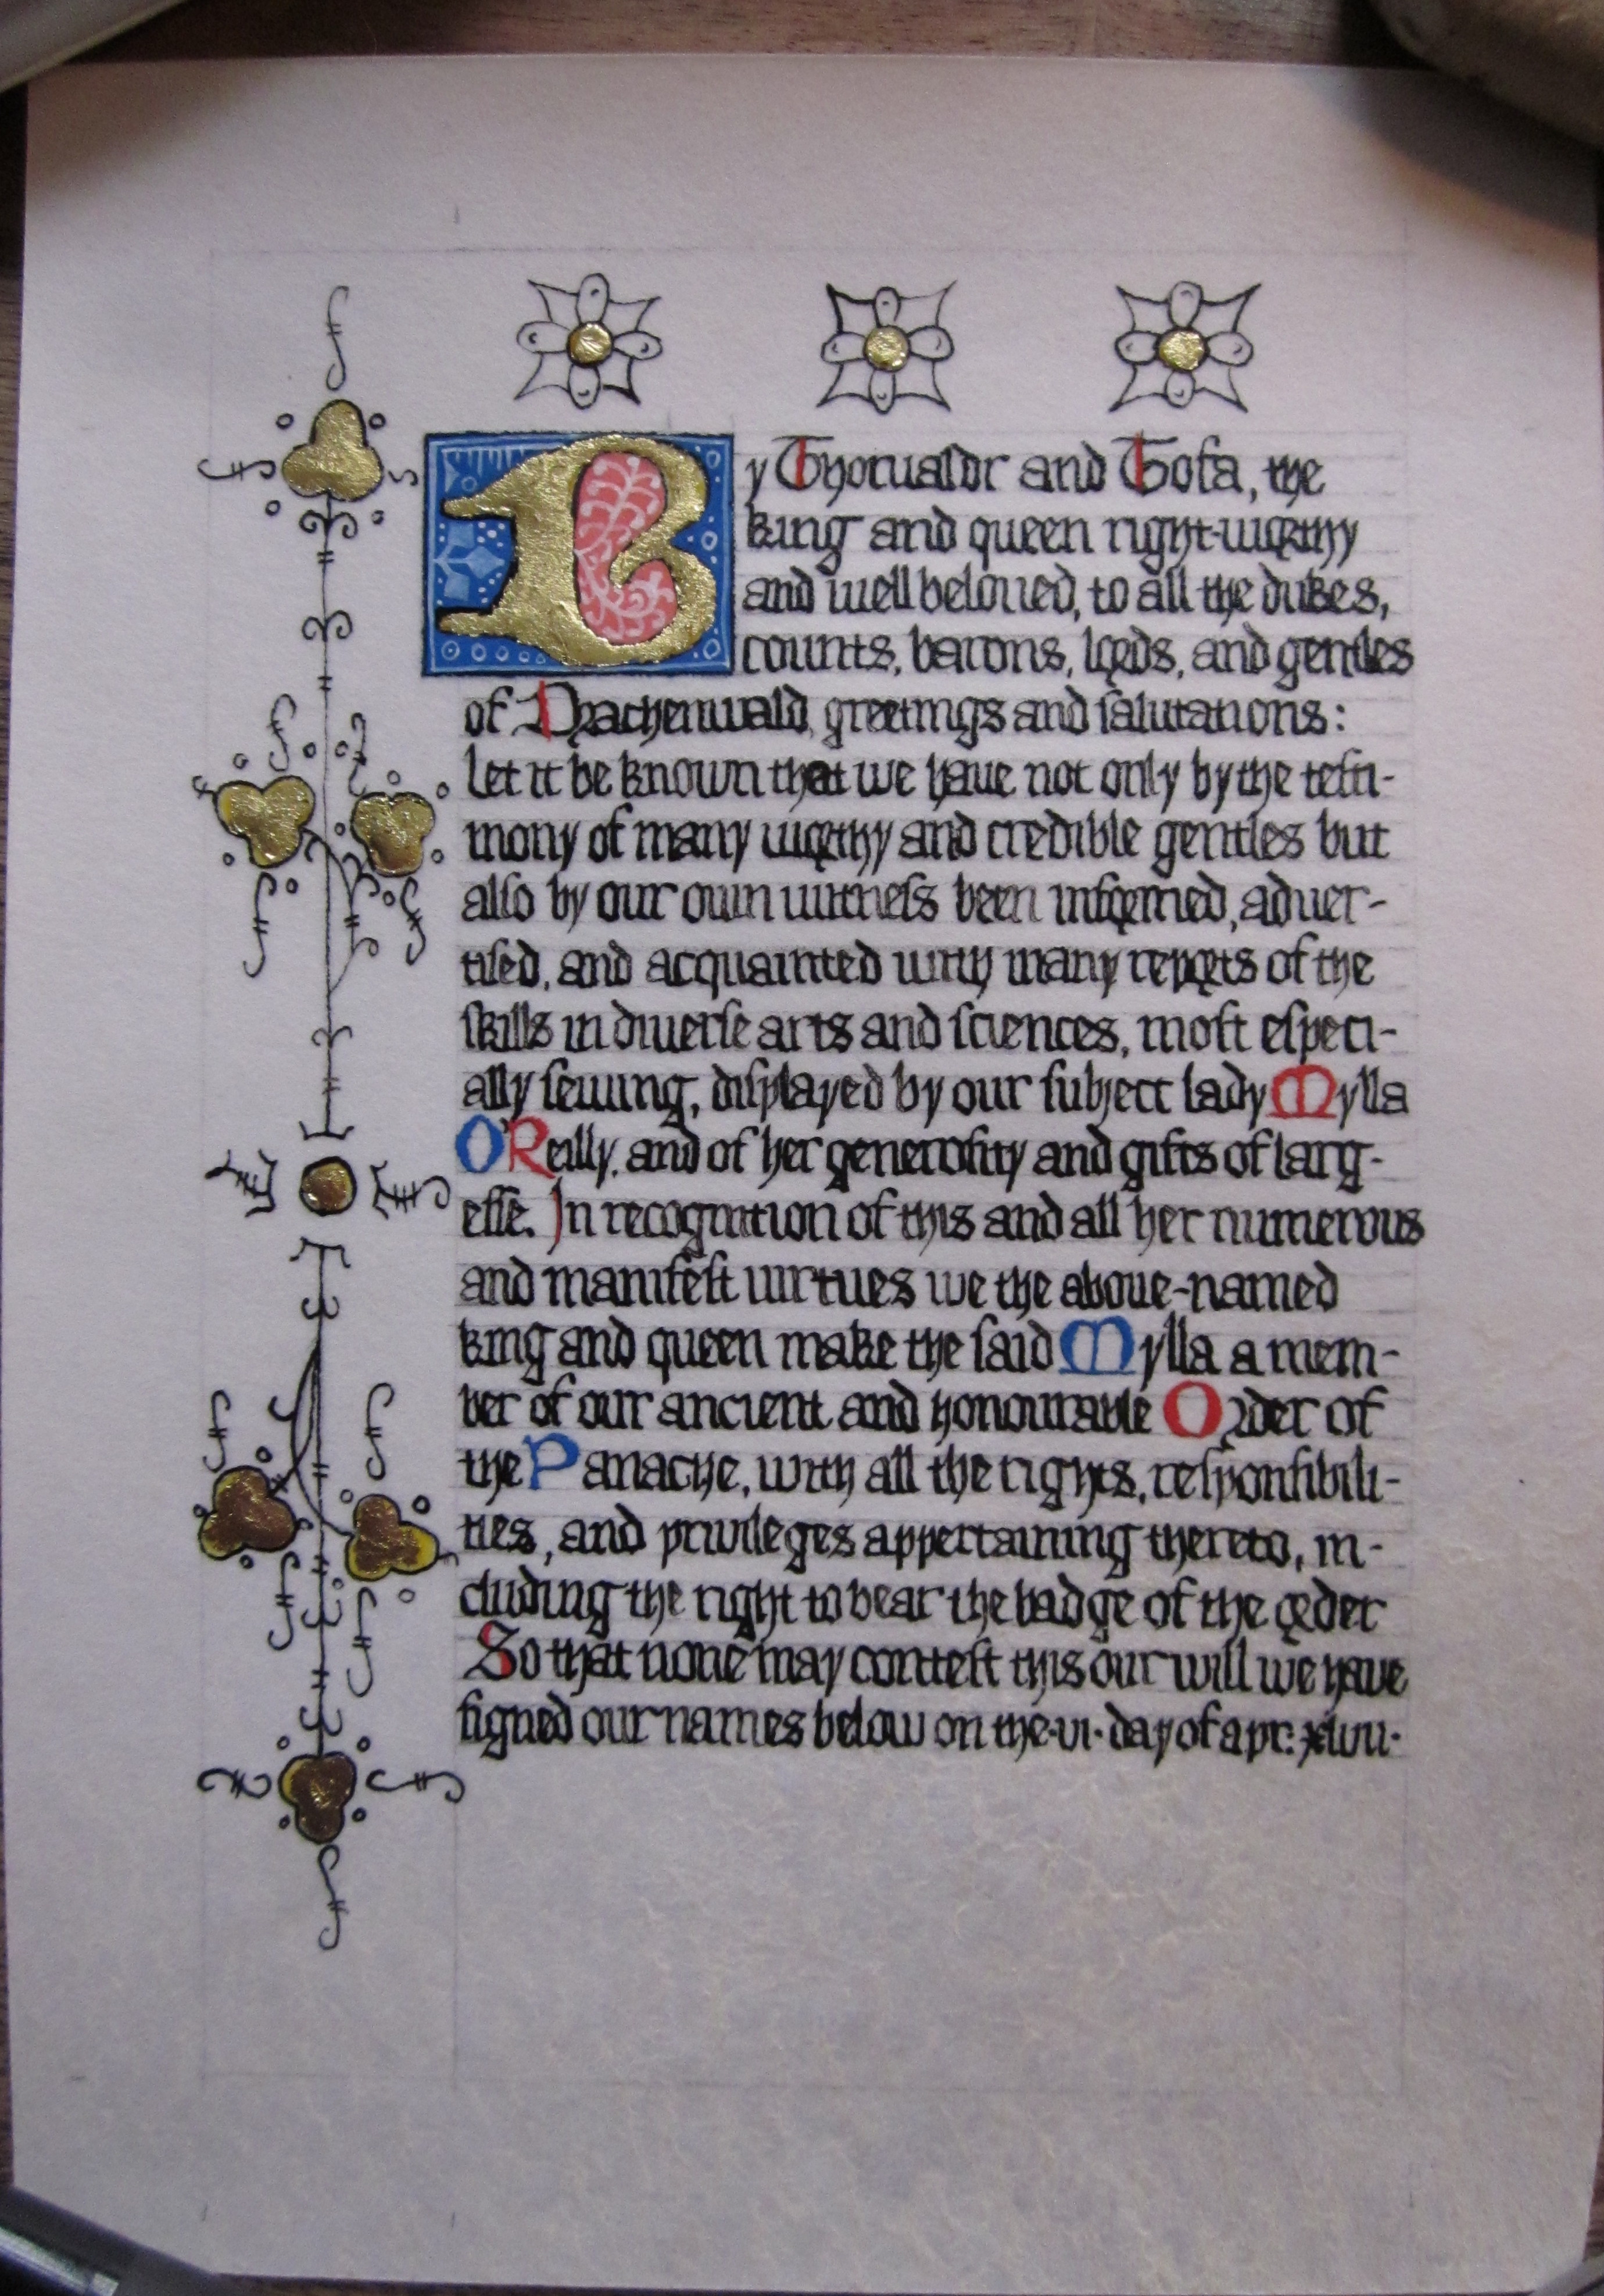 By Thorualdr and Tofa, the
king and queen right-worthy
and well beloued, to all the dukes,
counts, barons, lords, and gentles
of Drachenwald, greetings and ſalutations:
Let it be known that we haue not only by the teſti-
mony of many worthy and credible gentles but
alſo by our own witneſs been informed, aduer-
tiſed, and acquainted with many reports of the
ſkills in diuerſe arts and ſciences, moſt eſpeci-
ally ſewing, diſplayed by our ſubject lady Mylla
O'Reilly, and of her generoſity and gifts of larg-
eſſe. In recognition of this and all her numerous
and manifeſt uirtues we the aboue-named
king and queen make the ſaid Mylla a mem-
ber of our ancient and honourable Order of
the Panache, with all the rights, reſponſibili-
ties, and priuileges appertaining thereto, in-
cluding the right to bear the badge of the order
So that none may conteſt this our will we haue
ſigned our names below on the·vi·day of apr: xlviii·